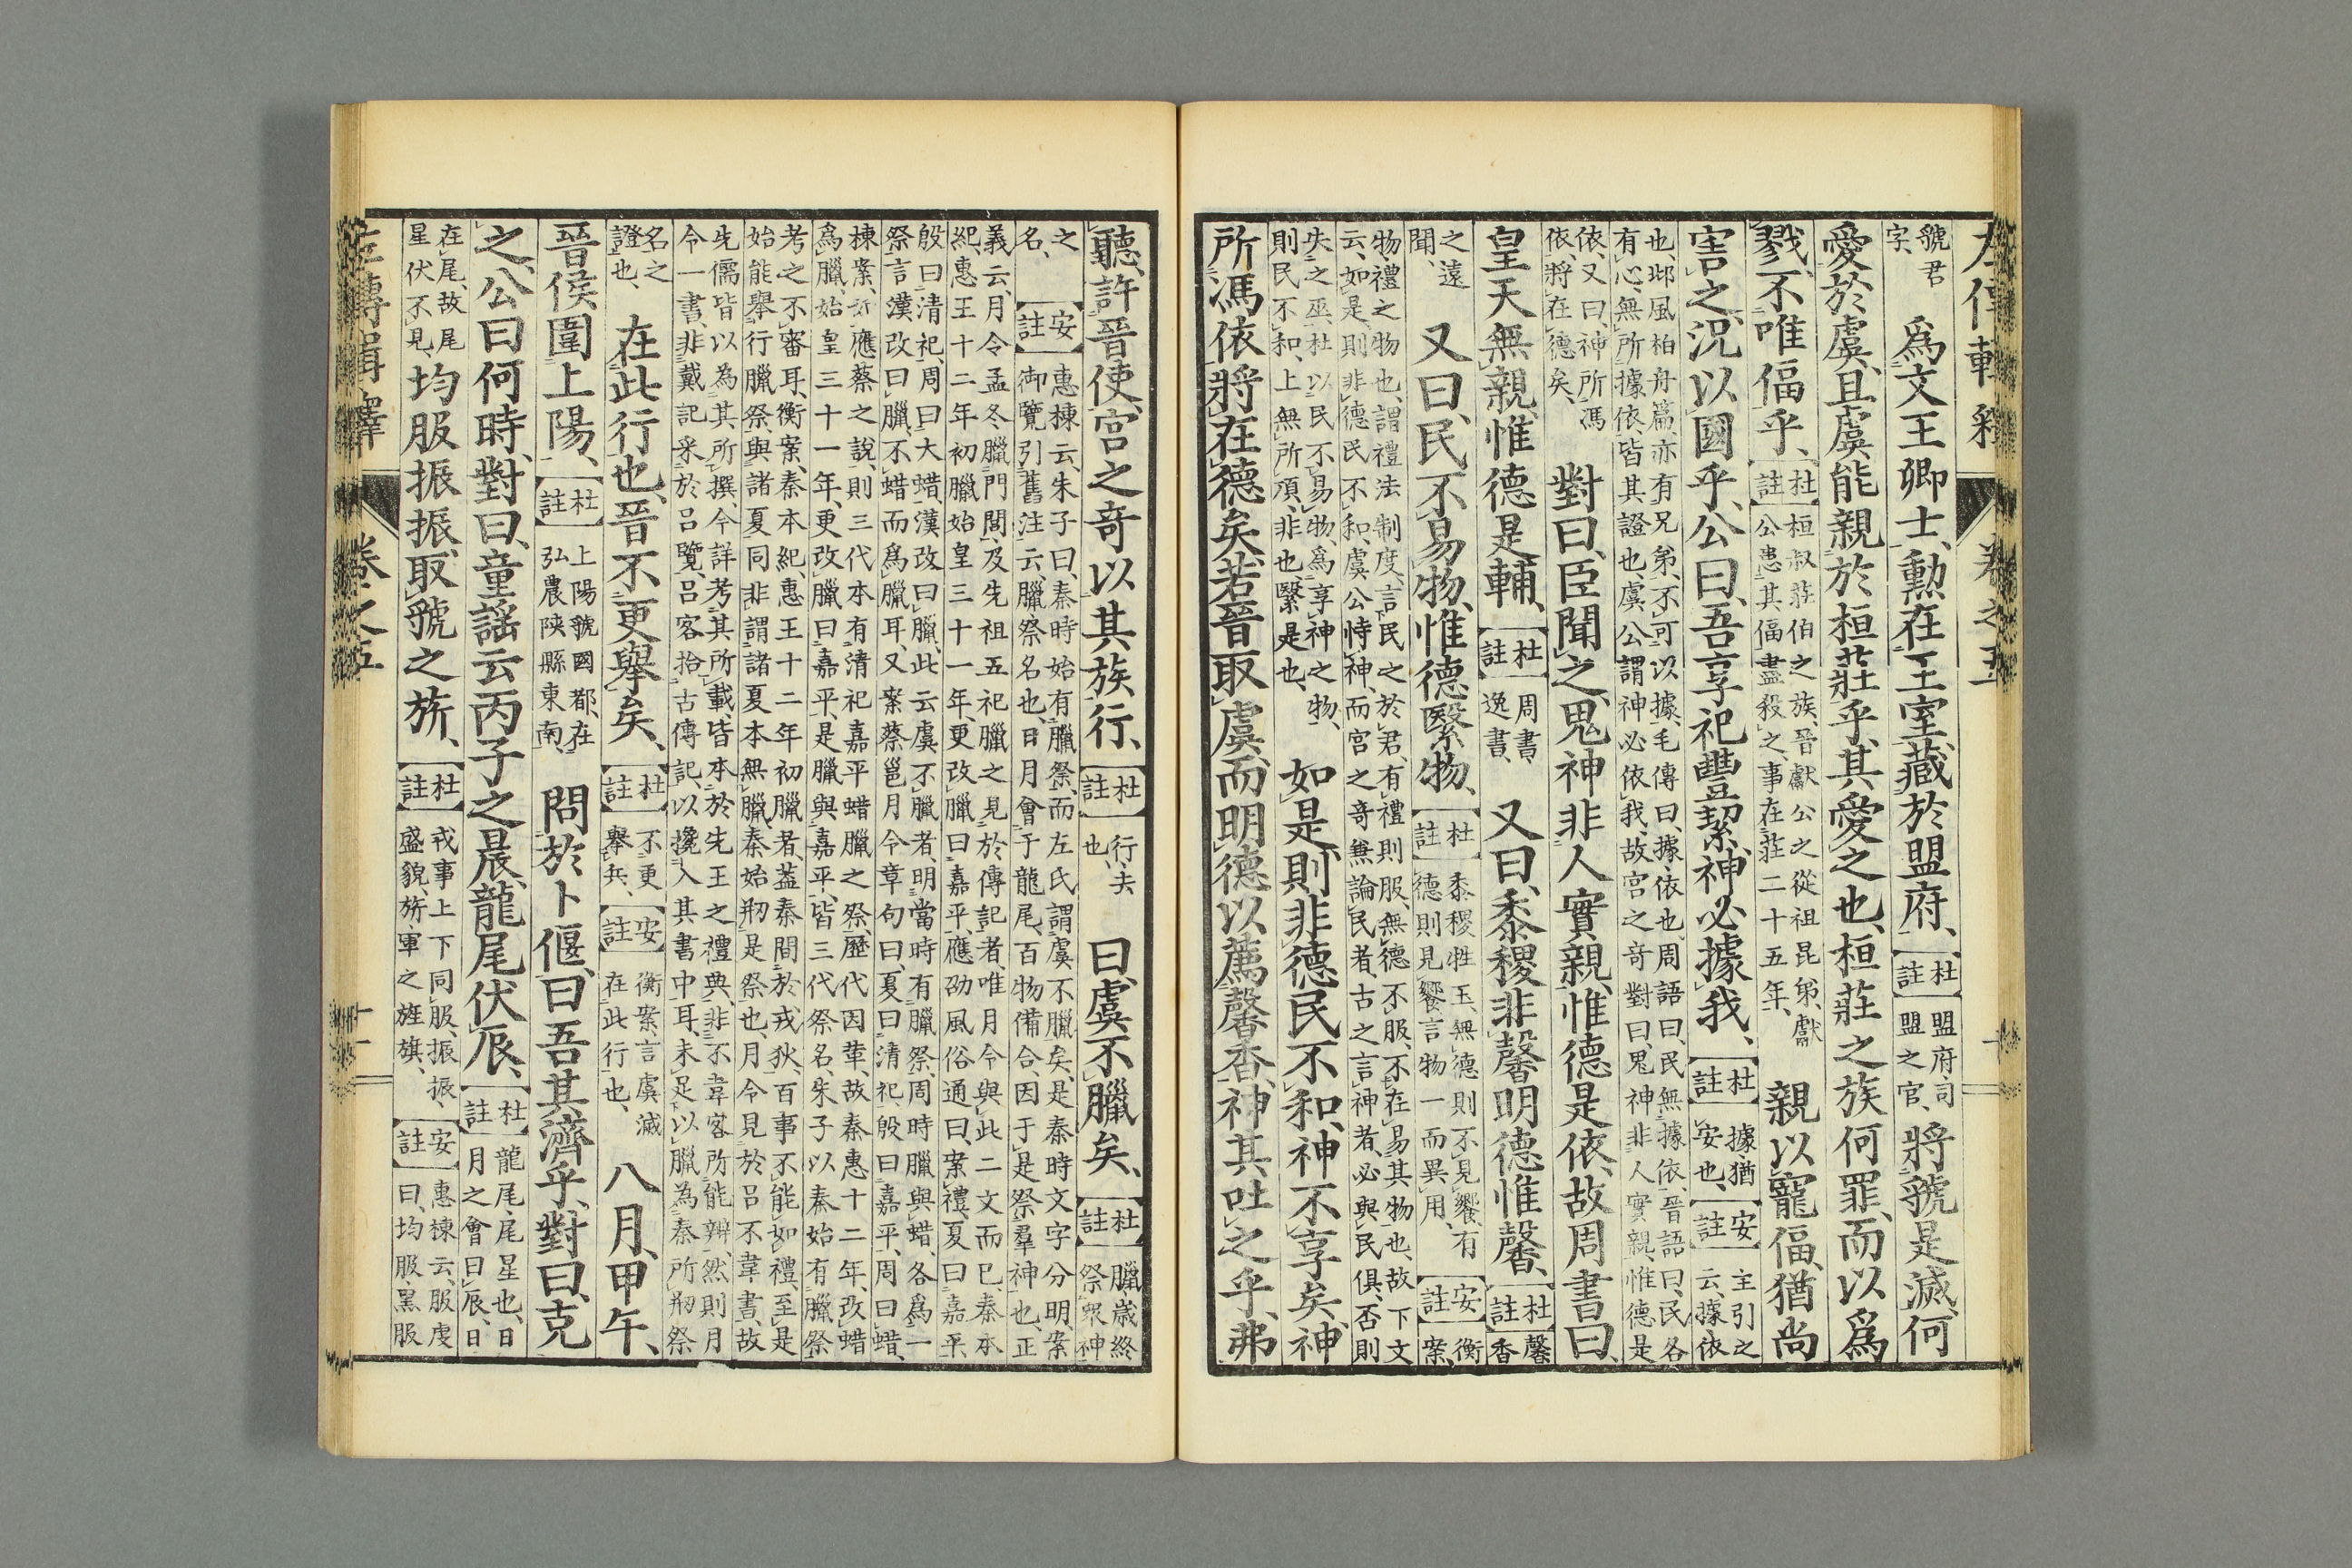 左傳輯釋 卷之五
虢君
字、
爲文王卿士、勲在王室、藏於盟府、
【杜註】
盟府、司
盟之官、
將虢是滅、何
愛於虞、且虞能親於桓莊乎、其愛之也、桓莊之族何罪、而以爲
戮、不唯偪乎、
【杜註】
桓叔莊伯之族、晉獻公之從祖昆弟、獻
公患其偪盡殺之、事在莊二十五年、
親以寵偪、猶尚
害之、況以國乎、公曰、吾享祀豐絜、神必據我、
【杜註】
據猶
安也、
【安註】
主引之
云、據依
也、邶風柏舟篇、亦有兄弟、不可以據、毛傳曰、據、依也、周語曰、民無據依、晉語曰、民各
有心、無所據依、皆其證也、虞公謂神必依我、故宮之奇對曰、鬼神非人實親、惟德是
依、又曰、神所馮
依、將在德矣、
對曰、臣聞之、鬼神非人實親、惟德是依、故周書曰、
皇天無親、惟德是輔、
【杜註】
周書、
逸書、
又曰、黍稷非馨、明德惟馨、
【杜註】
馨
香
之遠
聞、
又曰、民不易物、惟德繄物、
【杜註】
黍稷牲玉、無德則不見饗、有
德則見饗、言物一而異用、
【安註】
衡
案、
物禮之物也、謂禮法制度、言民之於君、有禮則服、無德不服、不在易其物也、故下文
云、如是、則非德民不和、虞公恃神、而宮之奇兼論民者、古之言神者、必與民俱、否則
失之巫、杜以民不易物、爲享神之物、
則民不和、上無所頂、非也、繄是也、
如是、則非德民不和、神不享矣、神
所馮依、將在德矣、若晉取虞、而明德以薦馨香、神其吐之乎、弗
聽、許晉使、宮之奇以其族行、
【杜註】
行、去
也、
曰、虞不臘矣、
【杜註】
臘歲終
祭衆神
之
名、
【安註】
惠棟云、朱子曰、秦時始有臘祭、而左氏謂虞不臘矣、是秦時文字分明、案
御覽引舊注云、臘祭名也、日月會于龍尾、百物備合、因于是祭羣神也、正
義云、月令孟冬臘門閭、及先祖五祀、臘之見於傳記者、唯月令與此二文而已、秦本
紀、惠王十二年初臘、始皇三十一年、更改臘曰嘉平、應劭風俗通曰、案禮、夏曰嘉平、
殷曰清祀、周曰大蜡、漢改曰臘、此云虞不臘者、明當時有臘祭、周時臘與蜡、各爲一
祭、言漢改曰臘、不蜡而爲臘耳、又案蔡邕月令章句曰、夏曰清祀、殷曰嘉平、周曰蜡、
棟案、如應蔡之說、則三代本有清祀嘉平蜡臘之祭、歷代因革、故秦惠十二年、改蜡
爲臘、始皇三十一年、更改臘曰嘉平、是臘與嘉平、皆三代祭名、朱子以秦始有臘祭
考之不審耳、衡案、秦本紀、惠王十二年初臘者、蓋秦間於戎狄、百事不能如禮、至是
始能舉行臘祭、與諸夏同、非謂諸夏本無臘、秦始刱是祭也、月令見於呂不韋書、故
先儒皆以為其所撰、今詳考其所載、皆本於先王之禮典、非不韋客所能辨、然則月
令一書、非戴記采於呂覽、呂客拾古傳記、以攙入其書中耳、未足以臘為秦所刱祭
名之
證也、
在此行也、晉不更舉矣、
【杜註】
不更
舉兵、
【安註】
衡案、言虞滅
在此行也、
八月甲午、
晉侯圍上陽、
【杜註】
上陽虢國都、在
弘農陝縣東南、
問於卜偃、曰、吾其濟乎、對曰、克
之、公曰、何時、對曰、童謠云、丙子之晨、龍尾伏辰、
【杜註】
龍尾、尾星也、日
月之會曰辰、日
在尾、故尾
星伏不見、
均服振振、取虢之旂、
【杜註】
戎事上下同服、振振、
盛貌、旂、軍之旌旗、
【安註】
惠棟云、服虔
曰、均服黑服
左傳輯釋 卷之五 十一